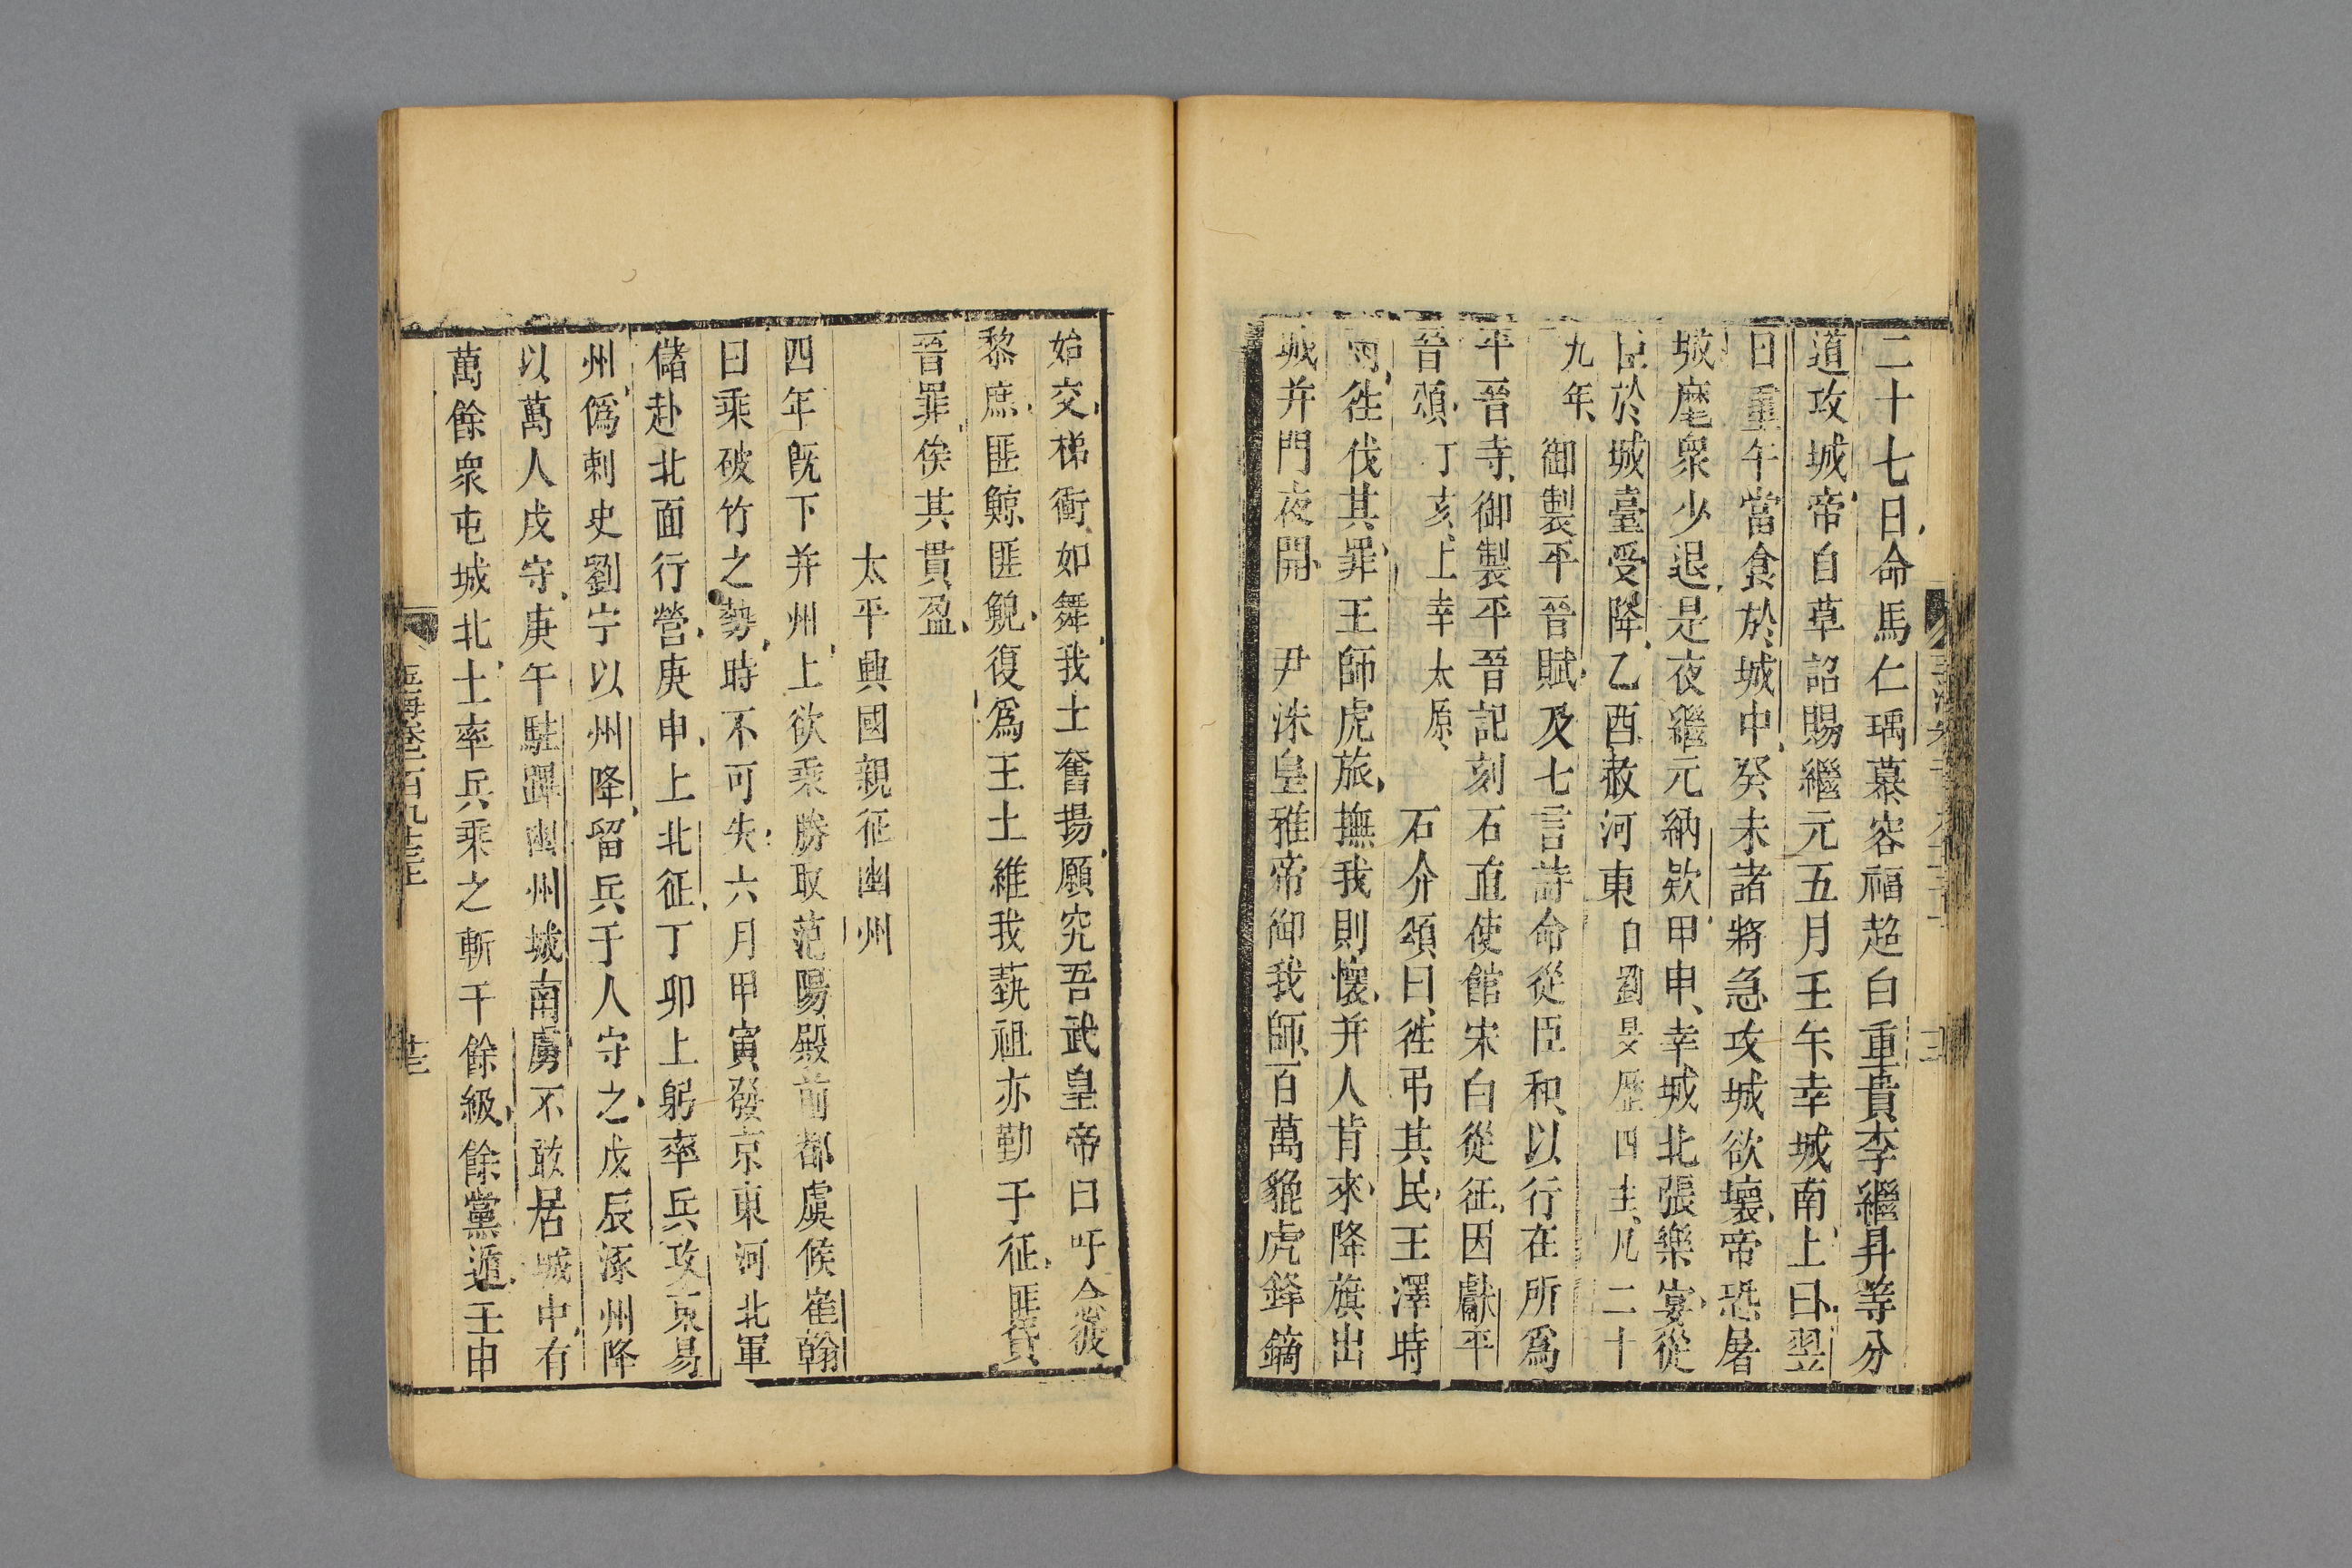 二十七日命馬仁瑀慕容福超白重貴李繼昇等分
道攻城帝自草詔賜繼元五月壬午幸城南上曰翌
日重午當食於城中癸未諸將急攻城欲壞帝恐屠
城麾衆少退是夜繼元納欵甲申幸城北張樂宴從
臣於城臺受降乙酉赦河東自劉旻歷四主凡二十
九年御製平晉賦及七言詩命從臣和以行在所爲
平晉寺御製平晉記刻石直使館宋白從征因獻平
晉頌丁亥上幸太原石介頌曰徃弔其民王澤時
雨徃伐其罪王師虎旅撫我則懷并人肯來降旗出
城并門夜開尹洙皇雅帝御我師百萬貔虎鋒鏑
始交梯衝如舞我士奮揚願究吾武皇帝曰吁念彼
黎庶匪鯨匪鯢復爲王土維我蓺祖亦勤于征匪貸
晉罪俟其貫盈
太平興國親征幽州
四年旣下并州上欲乘勝取范陽殿前都虞候崔翰
曰乘破竹之勢時不可失六月甲寅發京東河北軍
儲赴北面行營庚申上北征丁卯上躬率兵攻東易
州僞刺史劉宇以州降留兵千人守之戊辰涿州降
以萬人戍守庚午駐蹕幽州城南虜不敢居城中有
萬餘衆屯城北上率兵乘之斬千餘級餘黨遁壬申
玉海卷一百九十三上